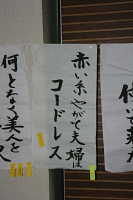 赤い糸やがて夫婦は
コードレス
何となく美人を